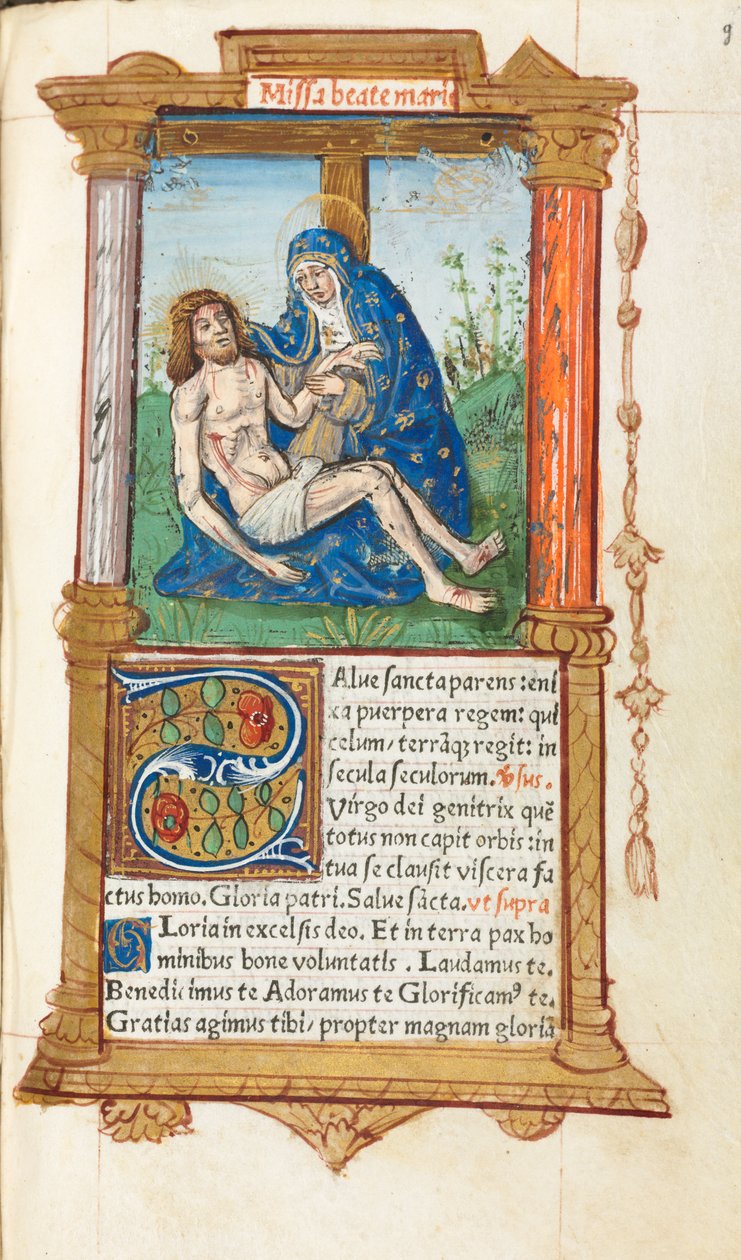 9
Missa beate marie
SAlue sancta parens : eni
xa puerpera regem: qui
celum/ terrāqꝫ regit: in
secula seculorum. v̉sus.
Virgo dei genitrix quē
totus non capit orbis : in
tua se clausit viscera fa
ctus homo. Gloria patri. Salue sācta. vt supra
GLoria in excelsis deo. Et in terra pax ho
minibus bone voluntatis . Laudamus te.
Benedicimus te Adoramus te Glorificamꝰ te.
Gratias agimus tibi/ propter magnam gloriā